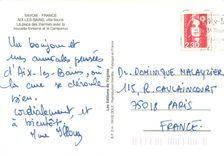 SAVOIE - FRANCE
AIX-LES-BAINS, ville fleurie
La place des thermes avec la
nouvelle fontaine et le Campanus
Un bonjour et
mes amicales pensées
d'Aix-les-Bains, où
la cure se déroule
bien.
Cordialement, et
à bientôt.
Mme
Les Editions de l'Edelweiss
2,30
Dr. DOMINIQUE MALAUZIER
115, R. CAULAINCOURT
75018 PARIS
FRANCE.